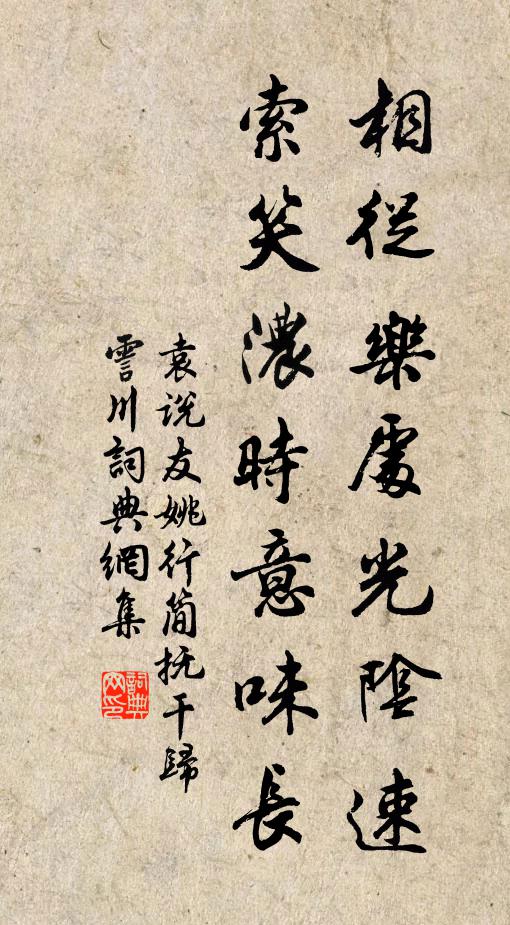 相從樂處光陰速
索笑濃時意味長
袁说友姚行简抚干歸
霅川詞典網集
詞典網印